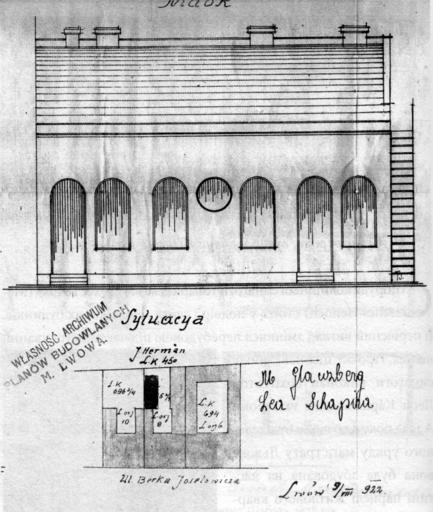 Widok
WŁASNOŚĆ ARCHIWUM
PLANÓW BUDOWLANYCH
M. LWOWA.
Sytuacya
J Herman
LK 450
LK
10
8
LK
694
M Glanzberg
Lea Schapira
Ul. Berka Joselowicza
Lwów 9/III 922